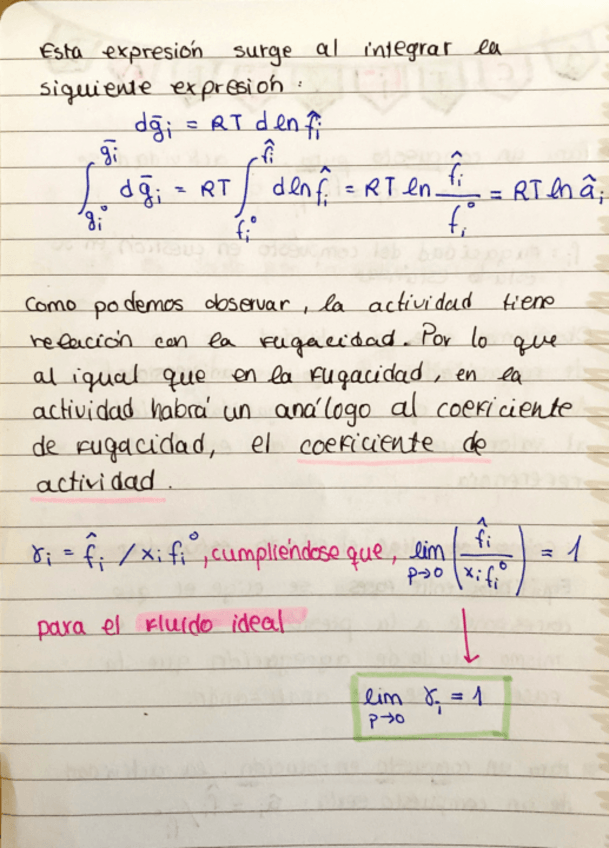 Esta expresión surge al integrar la
siguiente expresión:
dḡi = RT d ln f̂i
∫_{gi°}^{ḡi} dḡi = RT ∫_{fi°}^{f̂i} d ln f̂i = RT ln f̂i / fi° = RT ln âi
Como podemos observar, la actividad tiene
relación con la fugacidad. Por lo que
al igual que en la fugacidad, en la
actividad habrá un análogo al coeficiente
de fugacidad, el coeficiente de
actividad.
γi = f̂i / xi fi°, cumpliéndose que, lim p→0 (f̂i / xi fi°) = 1
para el fluido ideal
lim p→0 γi = 1